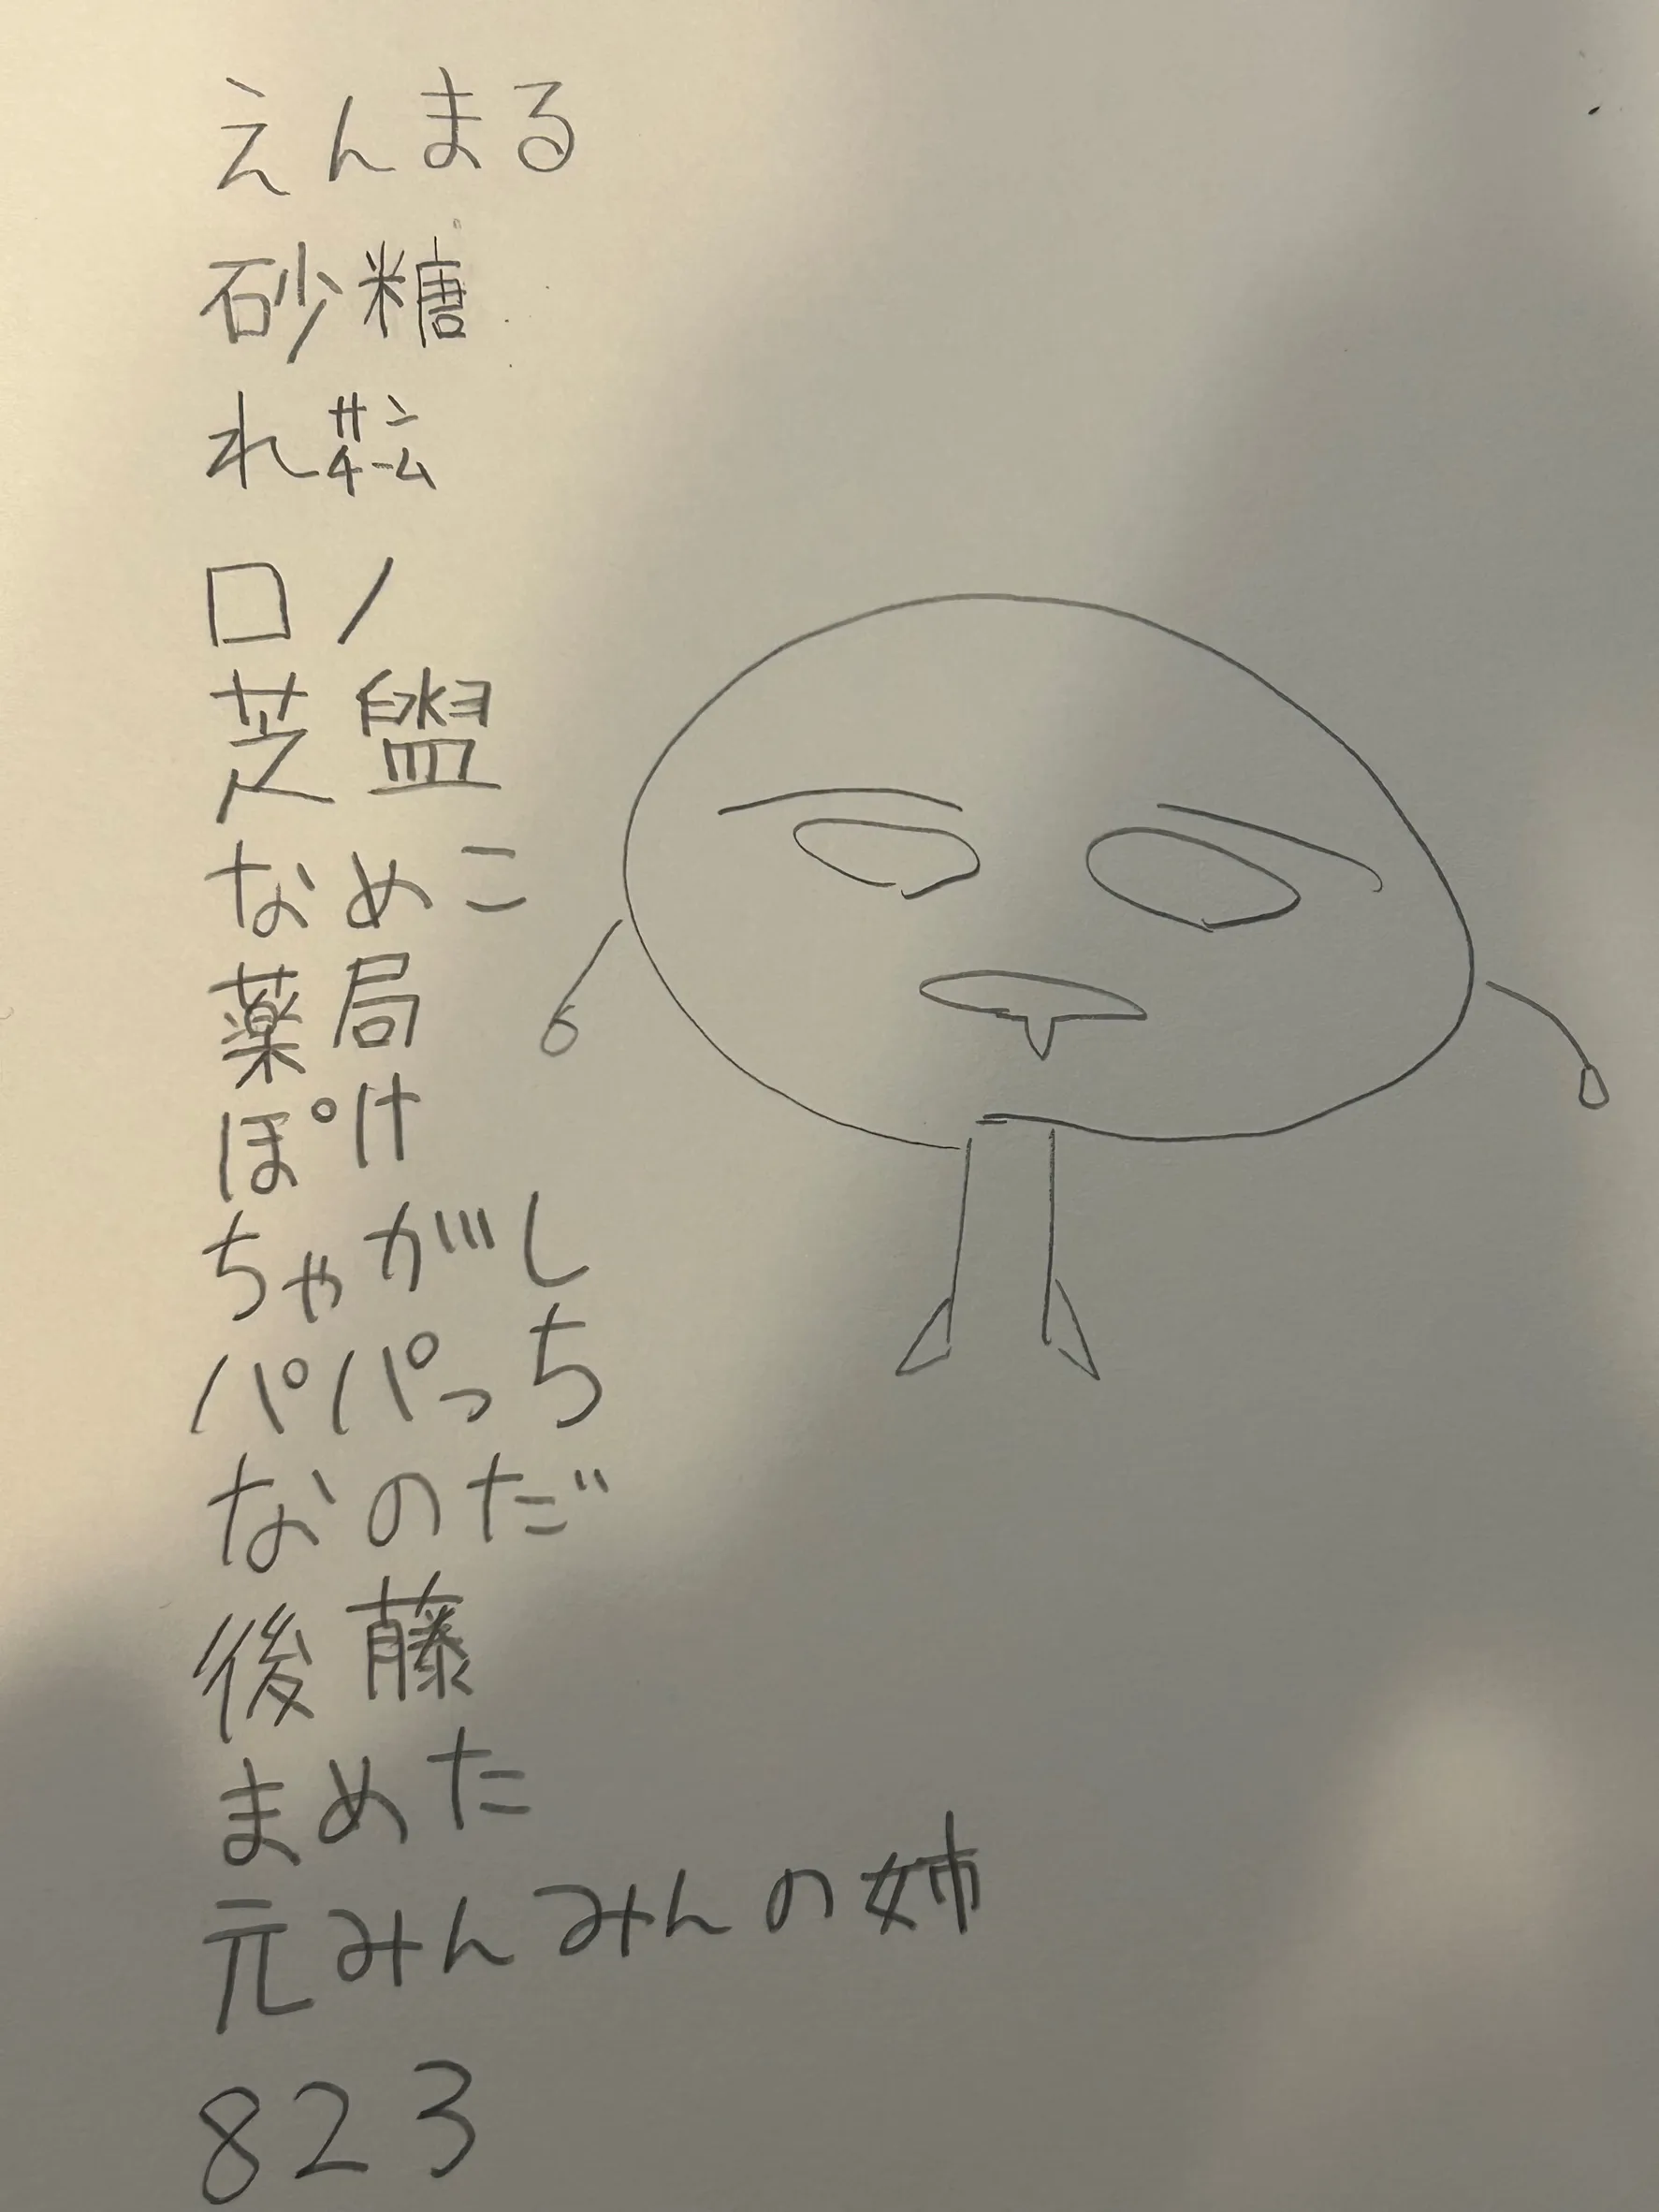 えんまる
砂糖
れ
ロノ
芝盥
なめこ
薬局
ぽけ
ちゃがし
パパっち
なのだ
後藤
まめた
元みんみんの姉
823